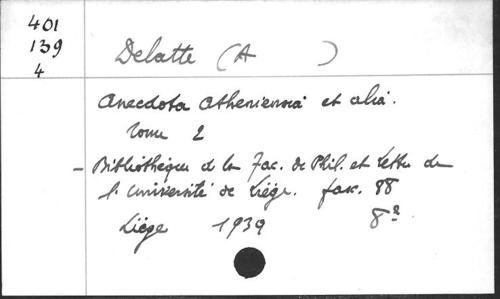 401
139
4
Delatte (A )
Anecdota Atheniensia et alia.
Tome 2
- Bibliothèque de la Fac. de Phil. et Lettres de
l'Université de Liège. fasc. 88
Liège 1939 8º